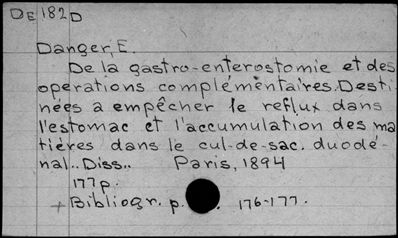 DE 182 D
Danger, E.
De la gastro-enterostomie et des
operations complémentaires. Desti
nées a empêcher le reflux dans
l'estomac et l'accumulation des ma
tières dans le cul-de-sac. duodé-
nal.. Diss.. Paris, 1894
177 p.
+ Bibliogr. p. 176-177.